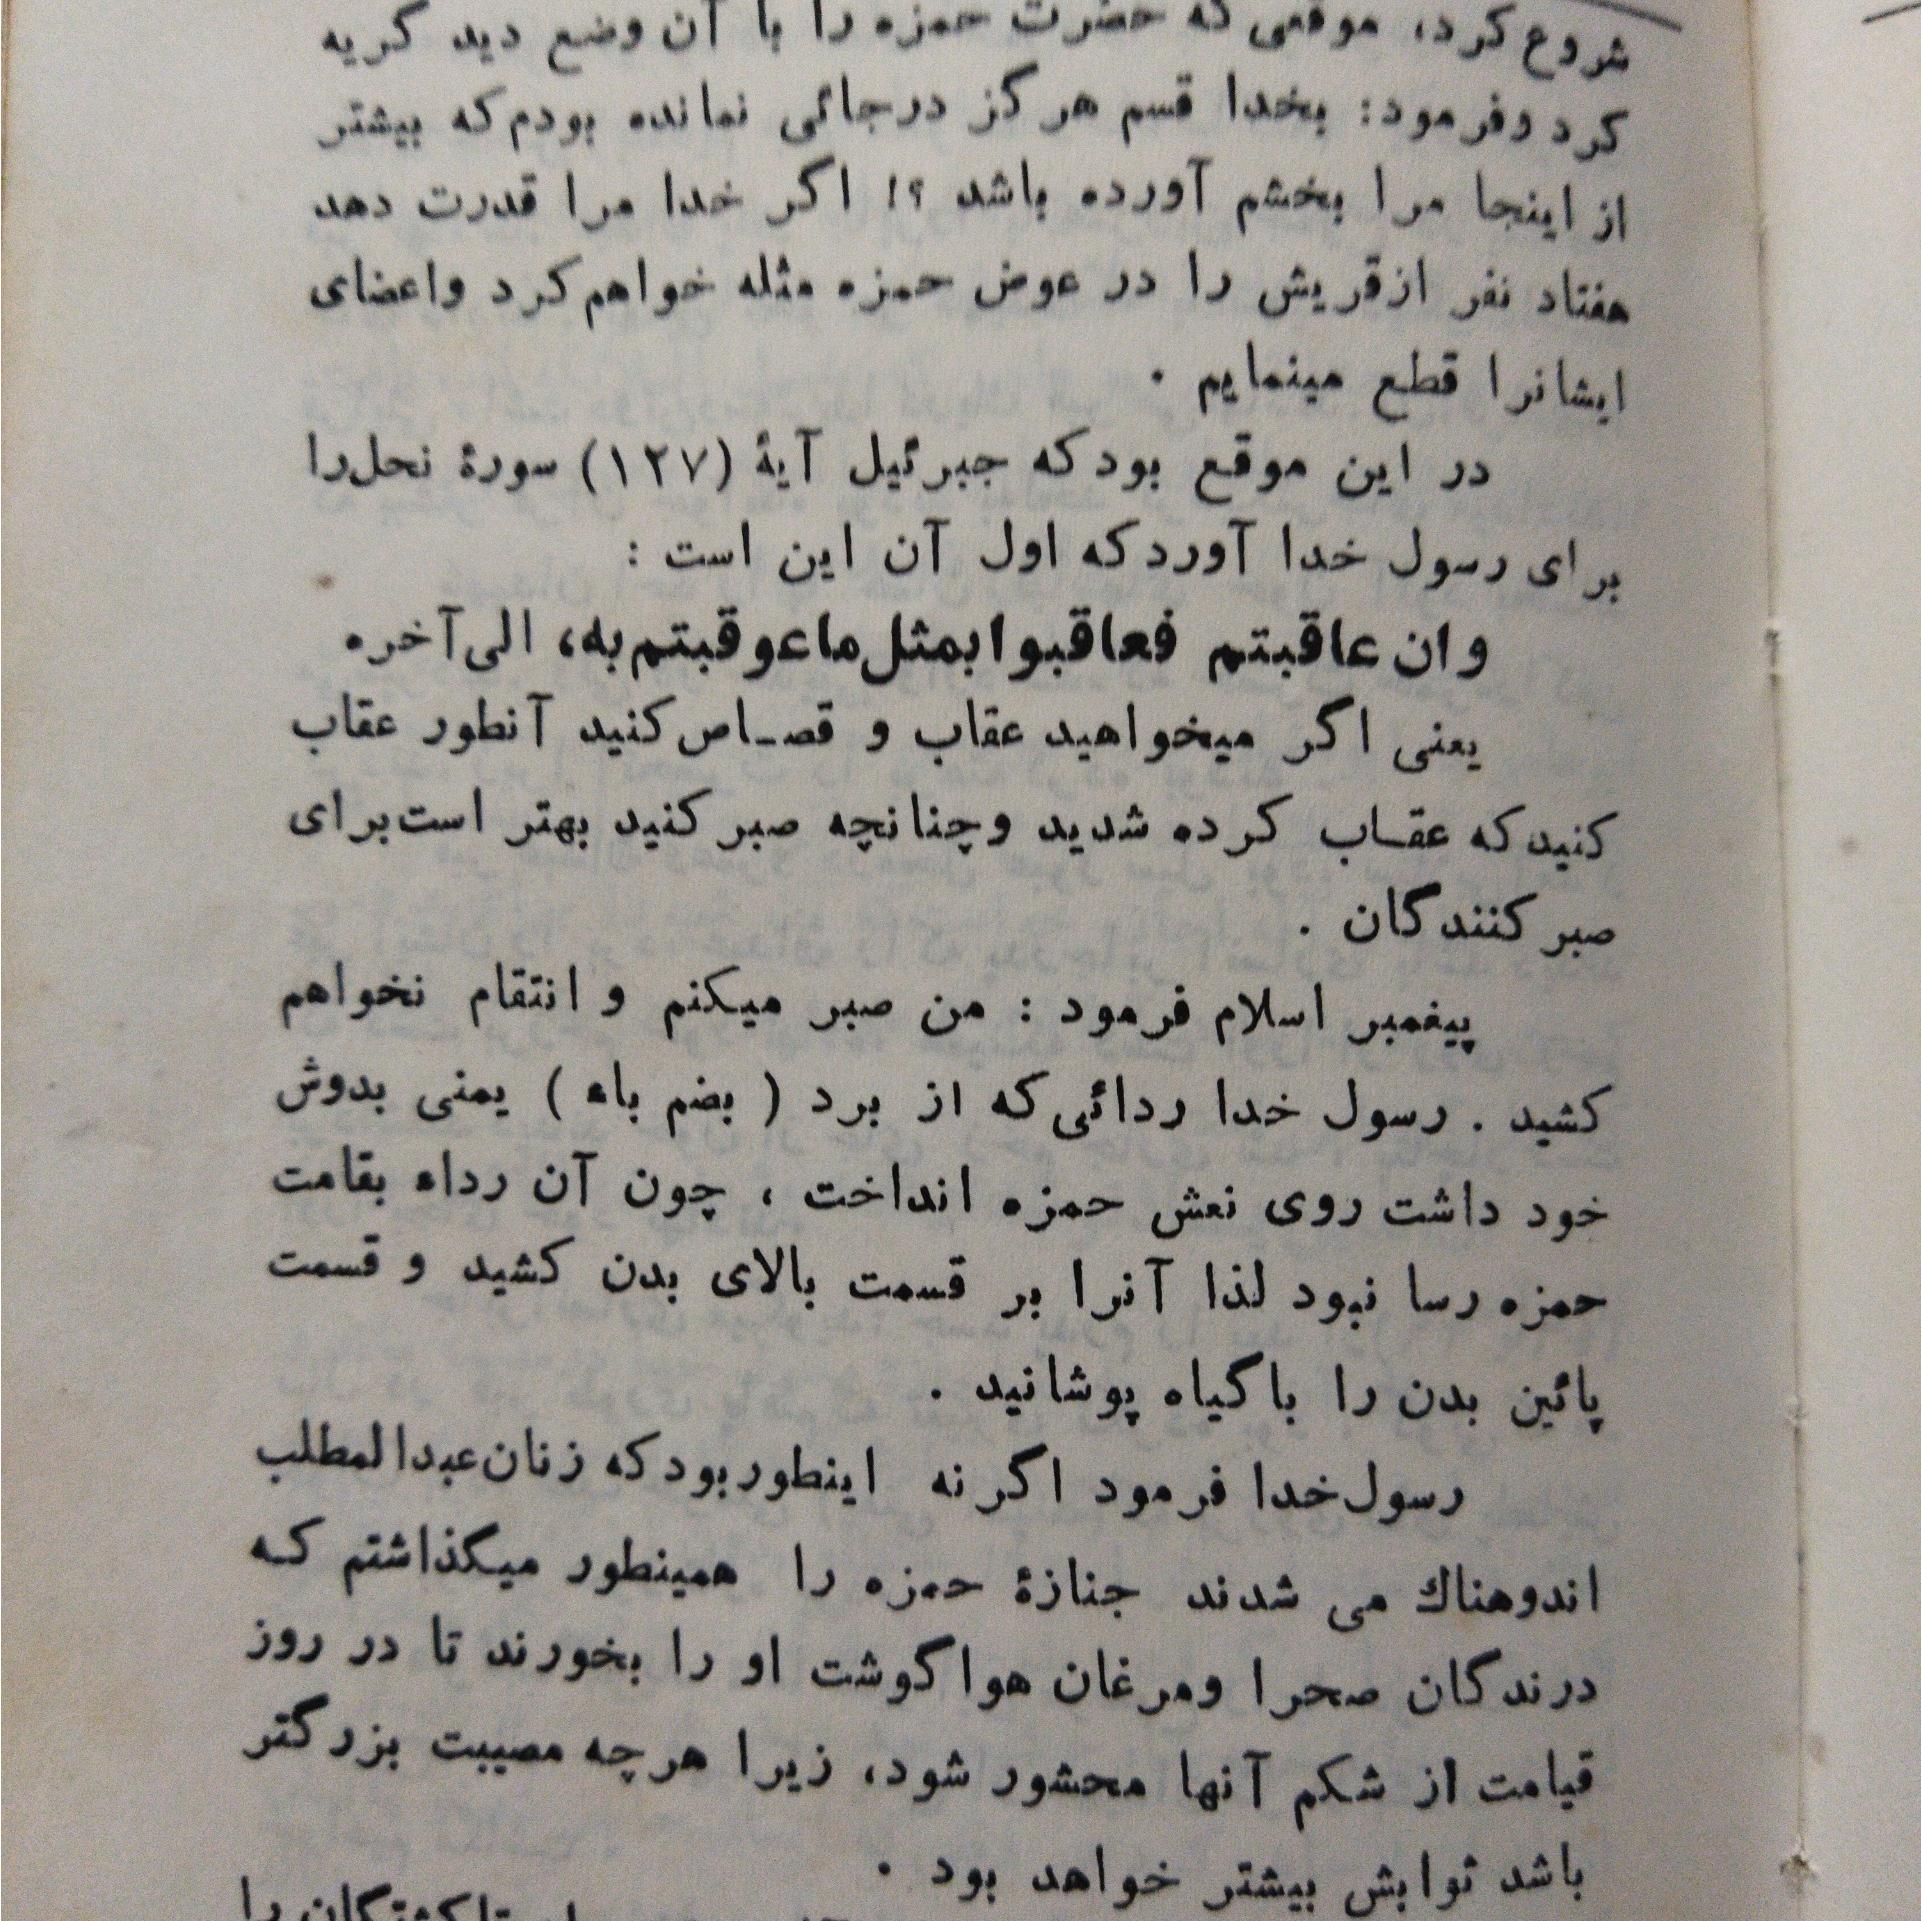 شروع کرد، موقعی که حضرت حمزه را با آن وضع دید گریه
کرد وفرمود: بخدا قسم هرگز درجائی نمانده بودم که بیشتر
از اینجا مرا بخشم آورده باشد ؟! اگر خدا مرا قدرت دهد
هفتاد نفر ازقریش را در عوض حمزه مثله خواهم کرد واعضای
ایشانرا قطع مینمایم .
در این موقع بود که جبرئیل آیهٔ (۱۲۷) سورهٔ نحل را
برای رسول خدا آورد که اول آن این است :
وان عاقبتم فعاقبوا بمثل ماعوقبتم به، الی آخره
یعنی اگر میخواهید عقاب و قصـاص کنید آنطور عقاب
کنید که عقـاب کرده شدید وچنانچه صبر کنید بهتر است برای
صبر کنندگان .
پیغمبر اسلام فرمود : من صبر میکنم و انتقام نخواهم
کشید . رسول خدا ردائی که از برد ( بضم باء ) یمنی بدوش
خود داشت روی نعش حمزه انداخت ، چون آن رداء بقامت
حمزه رسا نبود لذا آنرا بر قسمت بالای بدن کشید و قسمت
پائین بدن را با گیاه پوشانید .
رسول خدا فرمود اگر نه اینطور بود که زنان عبدالمطلب
اندوهناك می شدند جنازهٔ حمزه را همینطور میگذاشتم کـه
درندگان صحرا ومرغان هوا گوشت او را بخورند تا در روز
قیامت از شکم آنها محشور شود، زیرا هرچه مصیبت بزرگتر
باشد ثوابش بیشتر خواهد بود .
کشتگان را